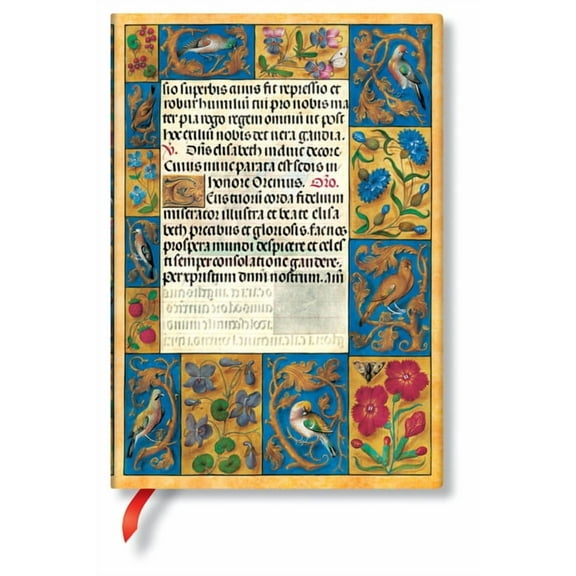 sio superbis cuius fit repressio et
robur humiliū tui pro nobis ma
ter pia rogo regem omniū ut post
hoc exiliū nobis det vera gaudia.
V. Dñs elisabeth induit decore
Cuius nunc parata est sedis in
honore Oremus. Oro.
Deus tuorū corda fidelium
miserator illustra et beate elisa
beth precibus et gloriosis. fac nos
prospera mundi despicere et cel es
ti semper consolatione gaudere.
per xpristum dnm nostrum. Am